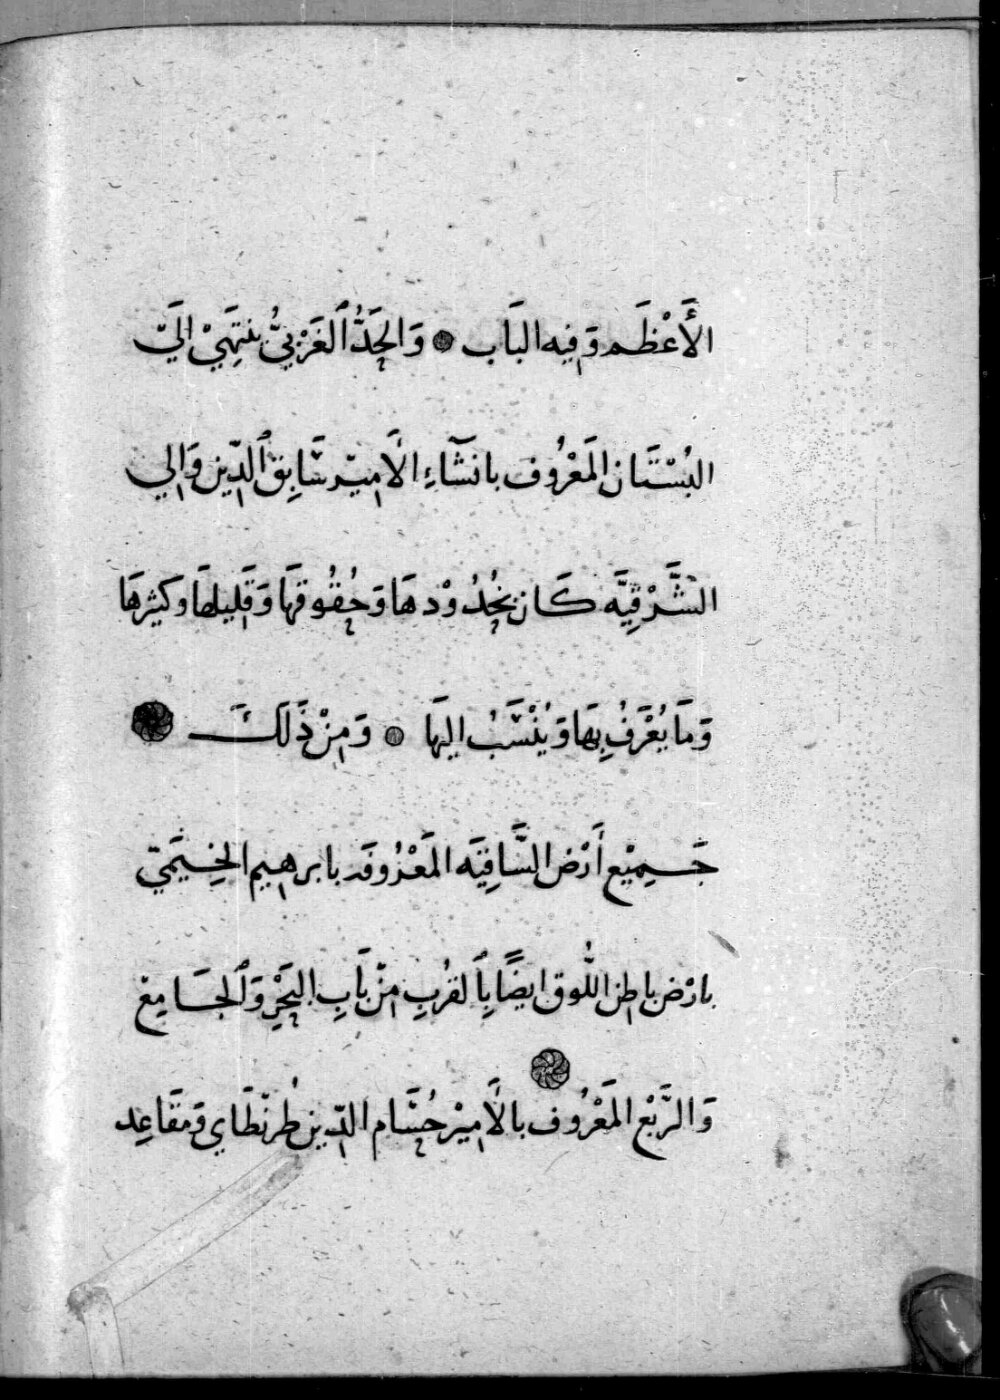 الأَعْظَم وَفِيه البَاب ۞ وَالحَدُّ ٱلغَرْبيُّ يَنتَهِيْ اِلَيّ
البُسْتَان المَعْرُوف بانشَآءِ الأَمِيْر سَابِق ٱلدّين وَاِلي
الشَّرْقِيَّه كَان بحُدُوْدهَا وَحُقُوقهَا وَقَلِيلهَا وكَثيرهَا
وَمَا يُعْرَفُ بِهَا وَيُنْسَبُ اليهَا ۞ وَمِنْ ذَلَكَ ۞
جَميْع أَرْض السَّاقِيَه المَعْرُوفَه بابرهيم الخِيَمِيّ
بارْض باطن اللُّوق ايضًا بِٱلقُربِ مِنْ بَابِ البَحْرِ وَٱلجَامِعْ
وَالرَّبْع المَعْرُوف بالأَمِيْر حُسَام الدّين طُرنْطَاي وَمَقَاعِد